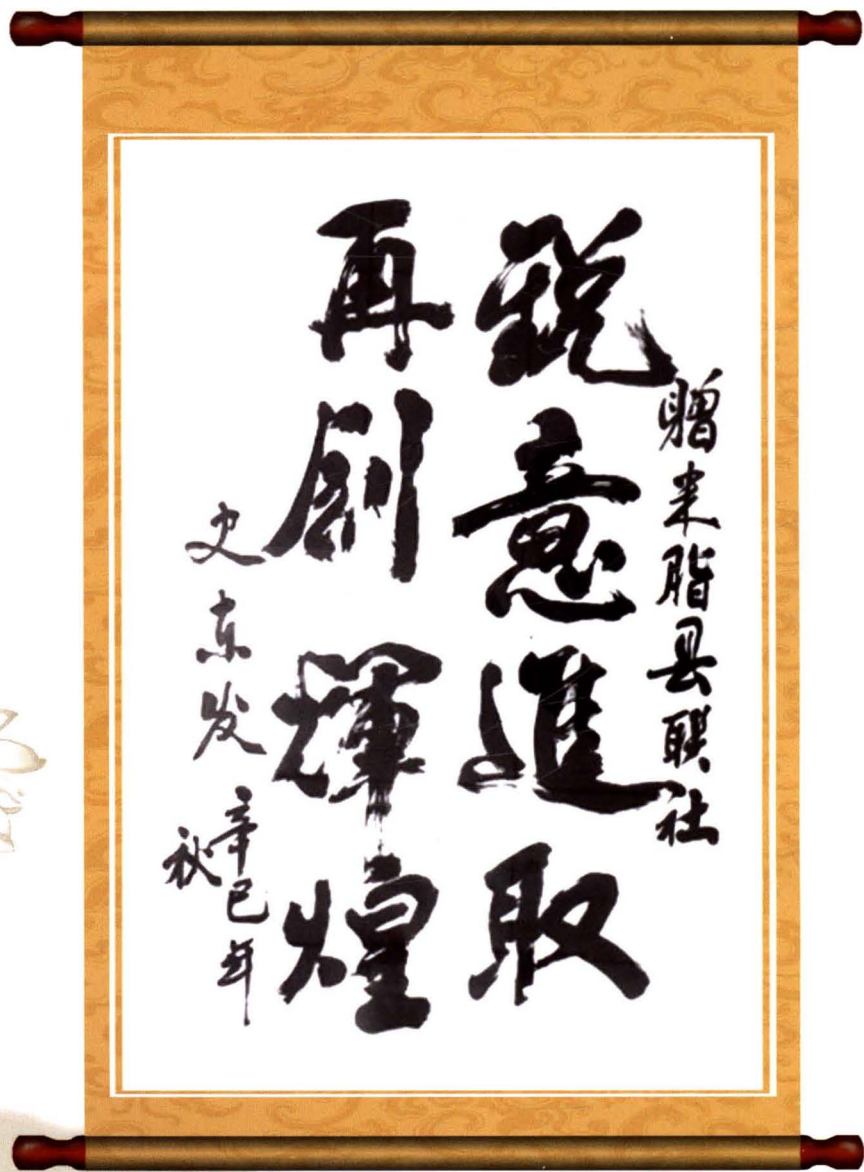 贈米脂县联社
銳意進取
再創輝煌
史东发
辛巳年
秋